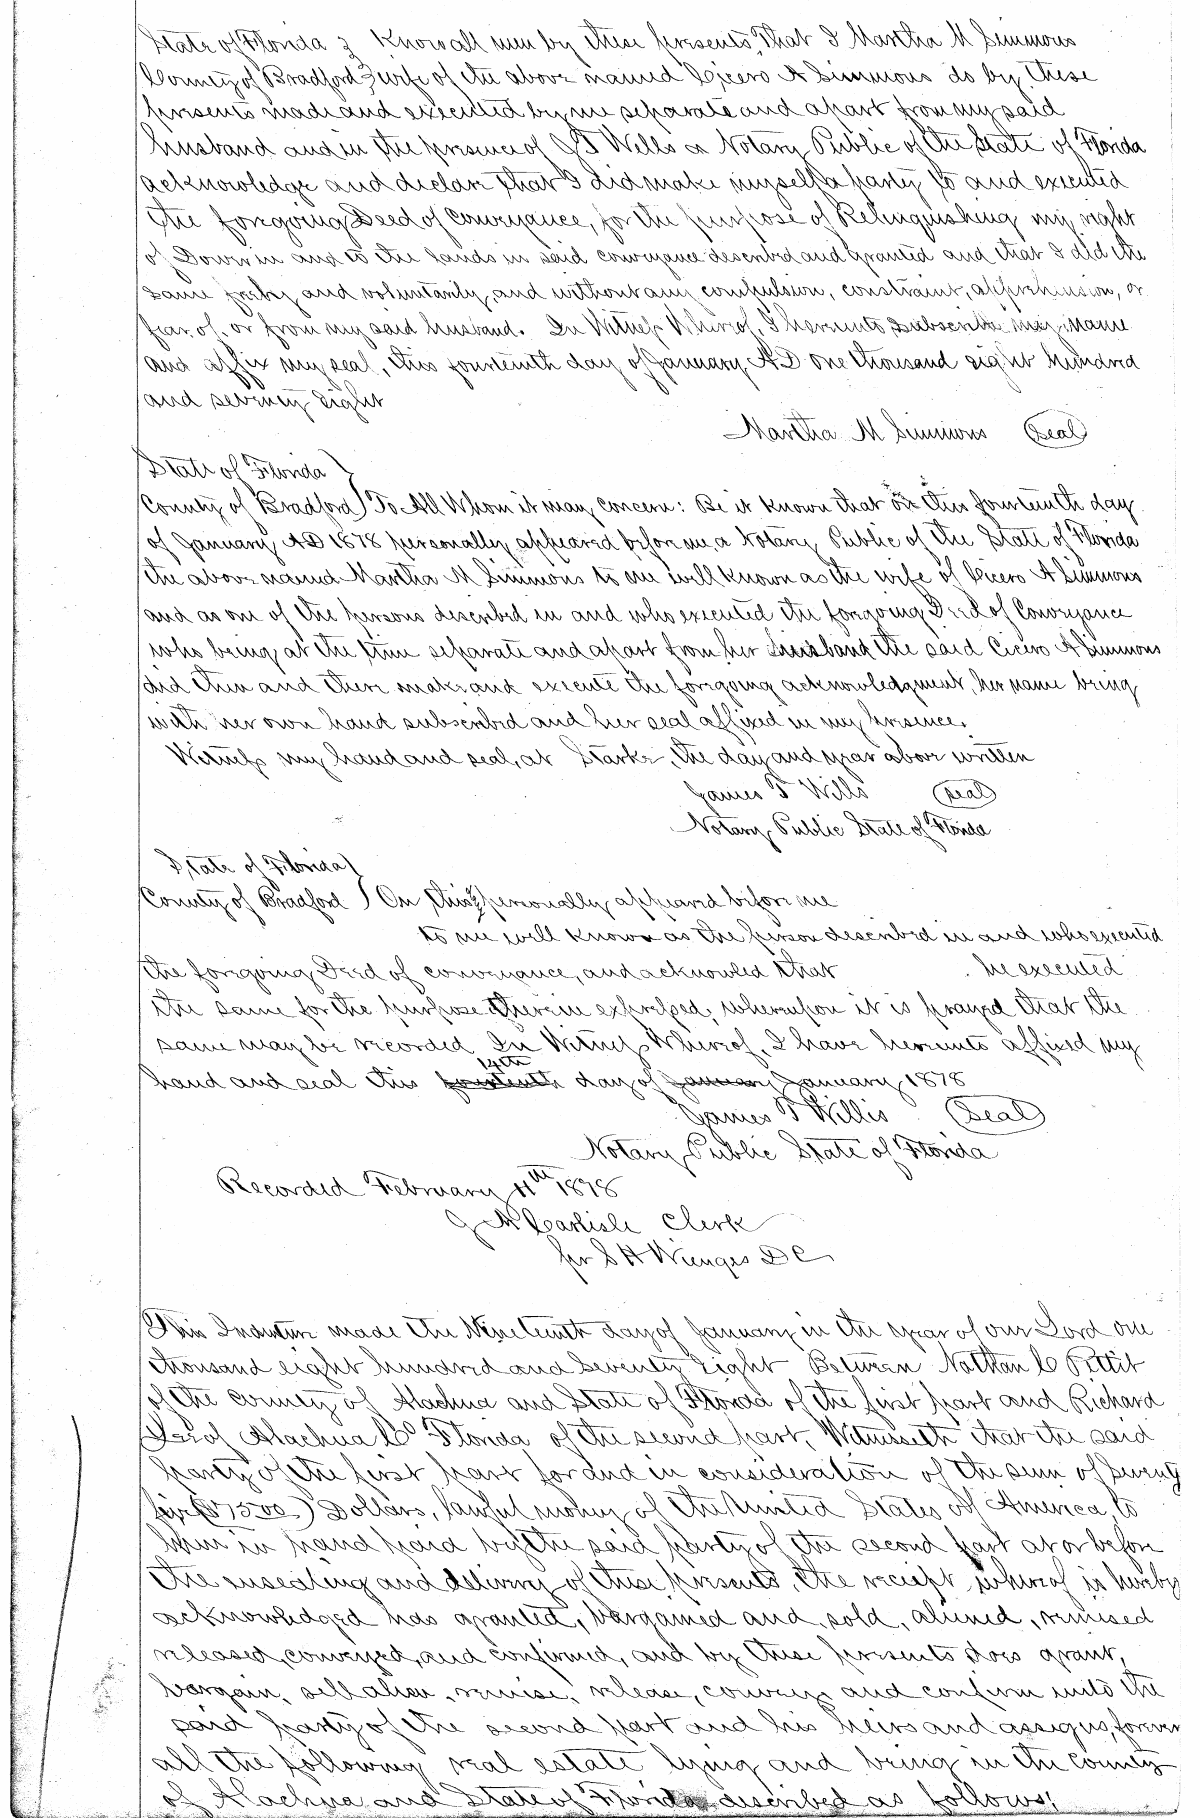 State of Florida } Know all men by these presents, That I Martha M Simmons
County of Bradford } wife of the above named Cicero A Simmons do by these
presents made and executed by me separate and apart from my said
husband and in the presence of J T Wells a Notary Public of the State of Florida
acknowledge and declare that I did make myself a party to and executed
the foregoing Deed of Conveyance, for the purpose of Relinquishing my right
of Dower in and to the lands in said conveyance described and granted and that I did the
same freely and voluntarily, and without any compulsion, constraint, apprehension, or
fear of, or from my said husband. In Witness Whereof, I hereunto subscribe my name
and affix my seal, this fourteenth day of January AD one thousand eight hundred
and seventy eight
Martha M Simmons (Seal)
State of Florida }
County of Bradford } To All Whom it may concern: Be it known that on this fourteenth day
of January AD 1878 personally appeared before me, a Notary Public of the State of Florida
the above named Martha M Simmons to me well known as the wife of Cicero A Simmons
and as one of the persons described in and who executed the foregoing Deed of Conveyance
who being at the time separate and apart from her husband the said Cicero A Simmons
did then and there make and execute the foregoing acknowledgment, her name being
with her own hand subscribed and her seal affixed in my presence.
Witness my hand and seal, at Starke, the day and year above written
James T Wells (Seal)
Notary Public State of Florida
State of Florida }
County of Bradford } On this personally appeared before me
to me well known as the person described in and who executed
the foregoing Deed of conveyance, and acknowled that he executed
the same for the purpose therein expressed, whereupon it is prayed that the
same may be recorded In Witness Whereof, I have hereunto affixed my
14th
hand and seal this fourteenth day of January January 1878
James T Willis (Seal)
Notary Public State of Florida
Recorded February 11th 1878
Carlisle Clerk
pr S H Wienges D C
This Indenture made the Nineteenth day of January in the year of our Lord one
thousand eight hundred and Seventy Eight Between Nathan C Pettit
of the County of Alachua and State of Florida of the first part and Richard
of Alachua Co Florida of the second part, Witnesseth that the said
party of the first part for and in consideration of the sum of Seventy
five ($75.00) Dollars, lawful money of the United States of America, to
him in hand paid by the said party of the second part at or before
the ensealing and delivery of these presents, the receipt whereof is hereby
acknowledged has granted, bargained and sold, aliened, remised
released, conveyed, and confirmed, and by these presents does grant,
bargain, sell alien, remise, release, convey and confirm unto the
said party of the second part and his heirs and assigns, forever
all the following real estate lying and being in the County
of Alachua and State of Florida described as follows;